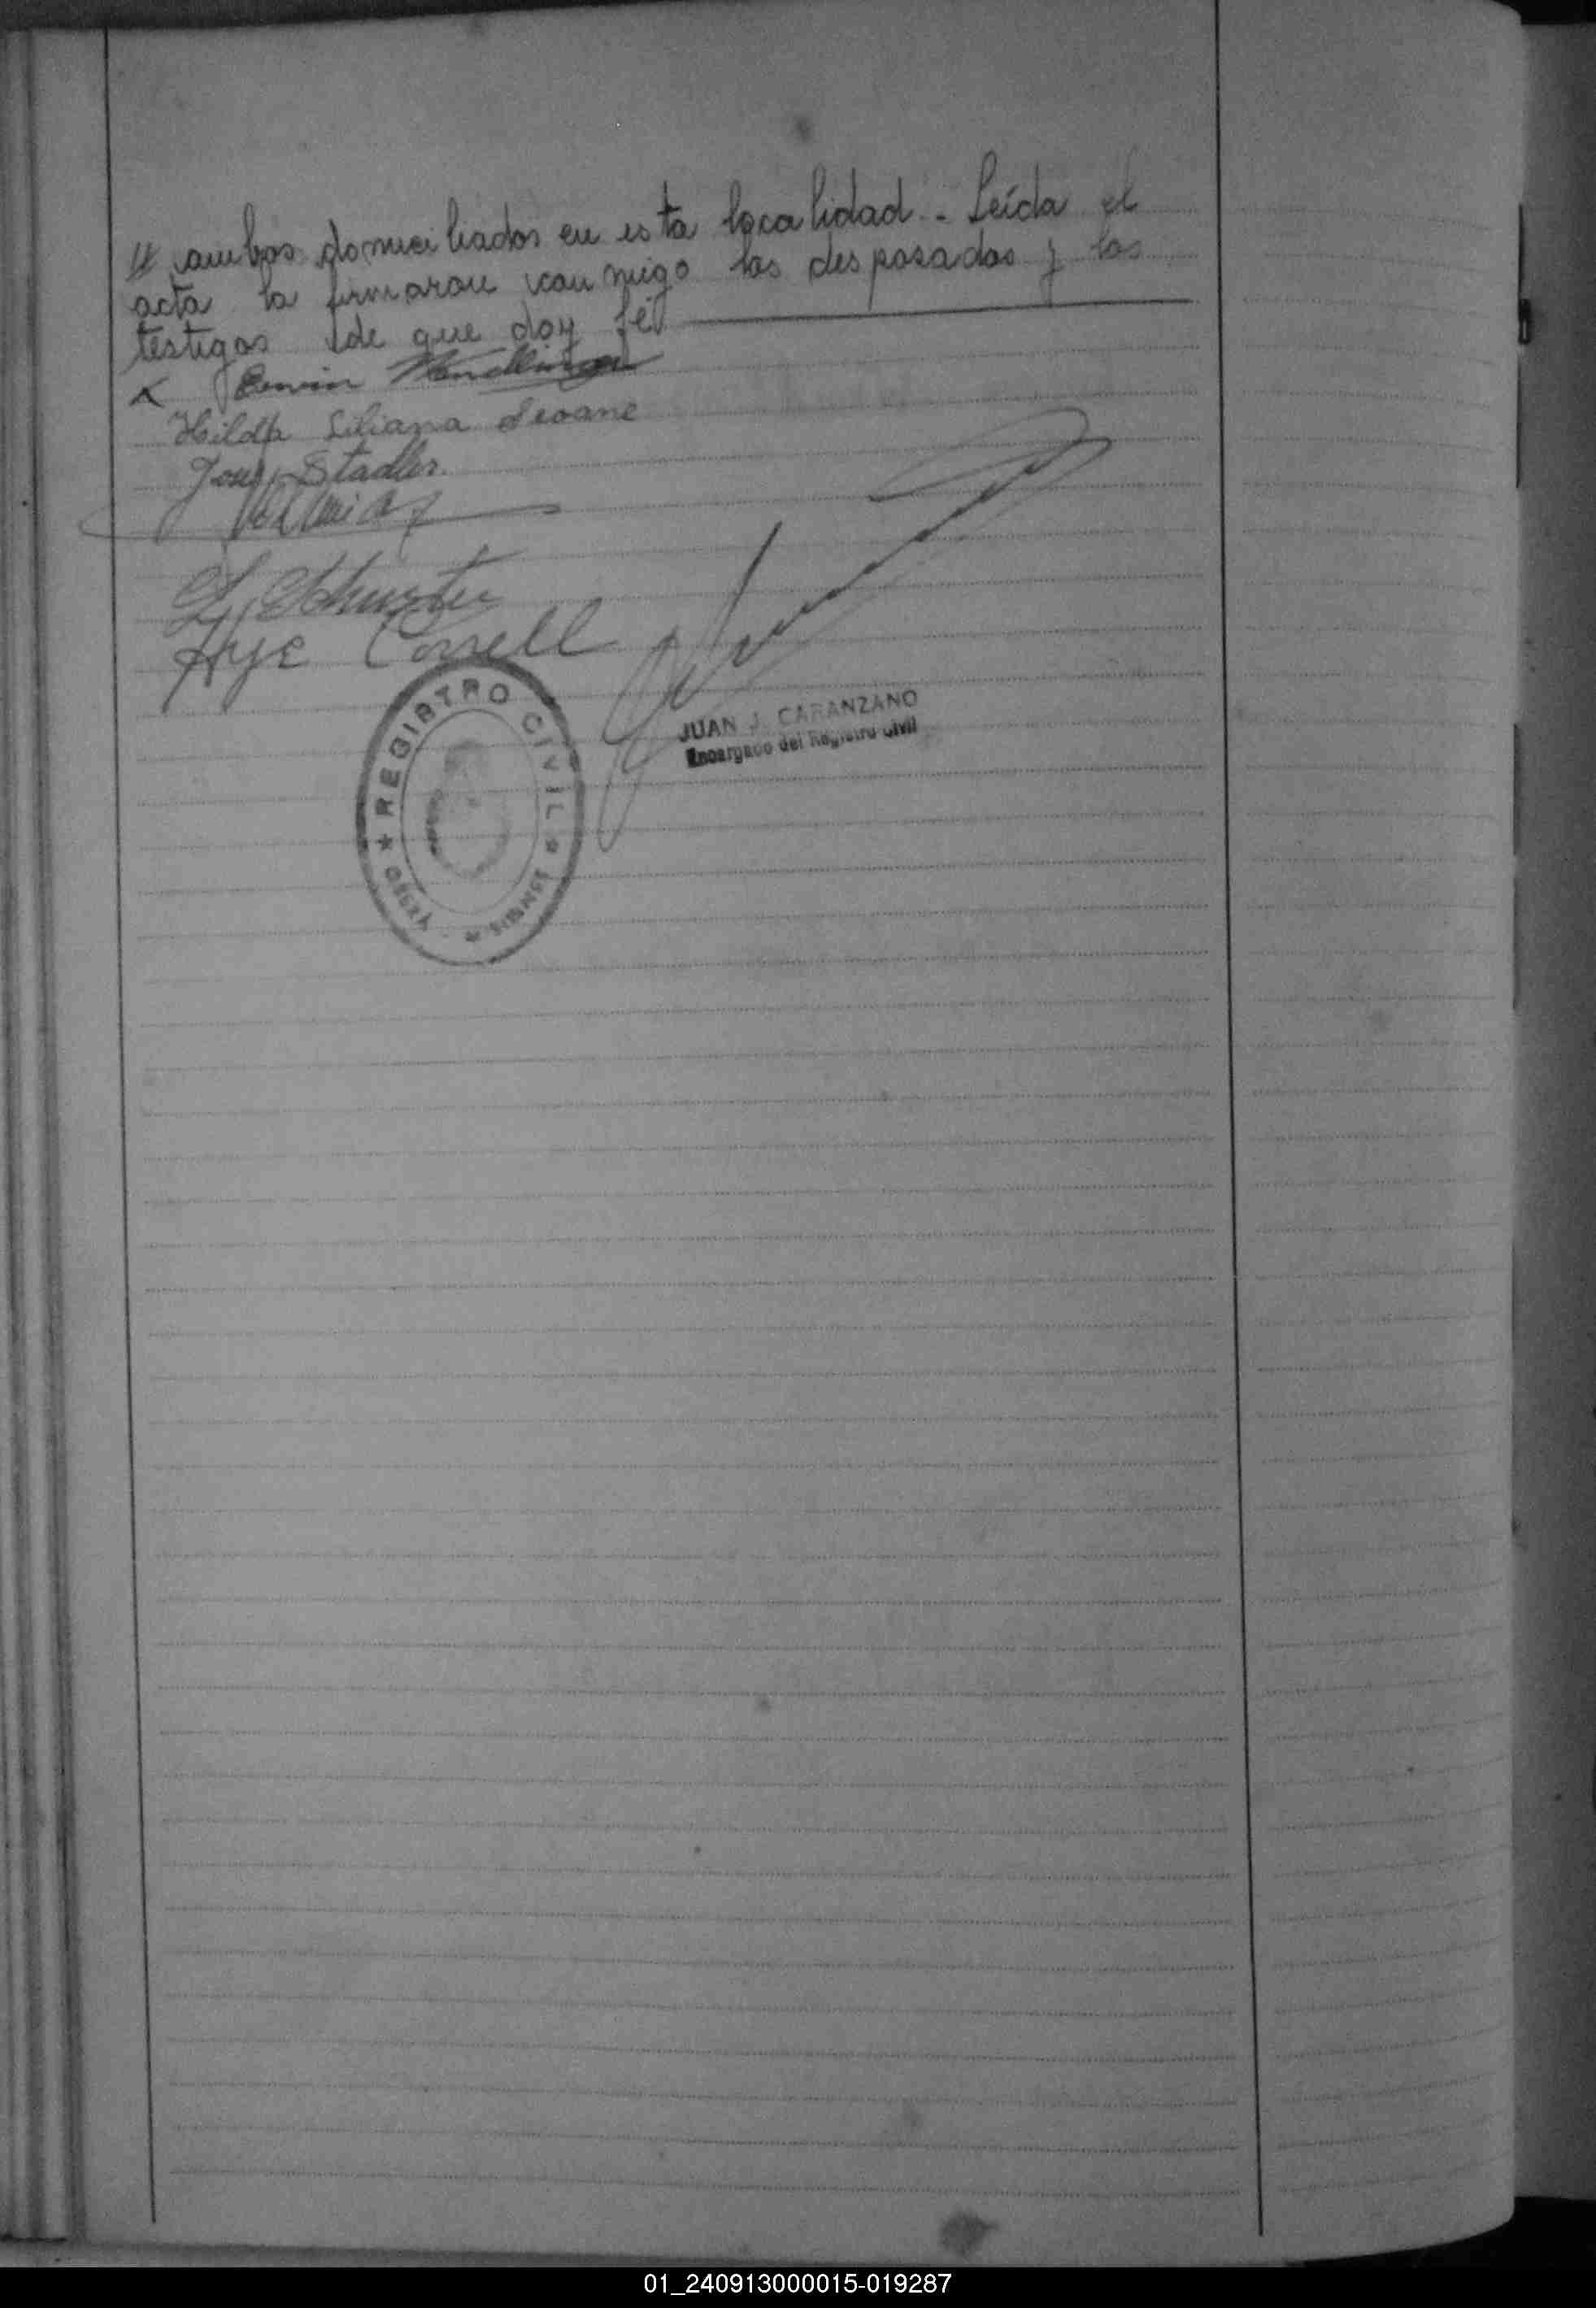 // ambos domiciliados en esta localidad - Leída el
acta la firmaron conmigo los desposados y los
testigos de que doy fé
Erwin
Hilda Liliana Seoane
Stadler
Schuster
REGISTRO CIVIL
OBERA
MISIONES
JUAN J. CARANZANO
Encargado del Registro Civil
01_240913000015-019287